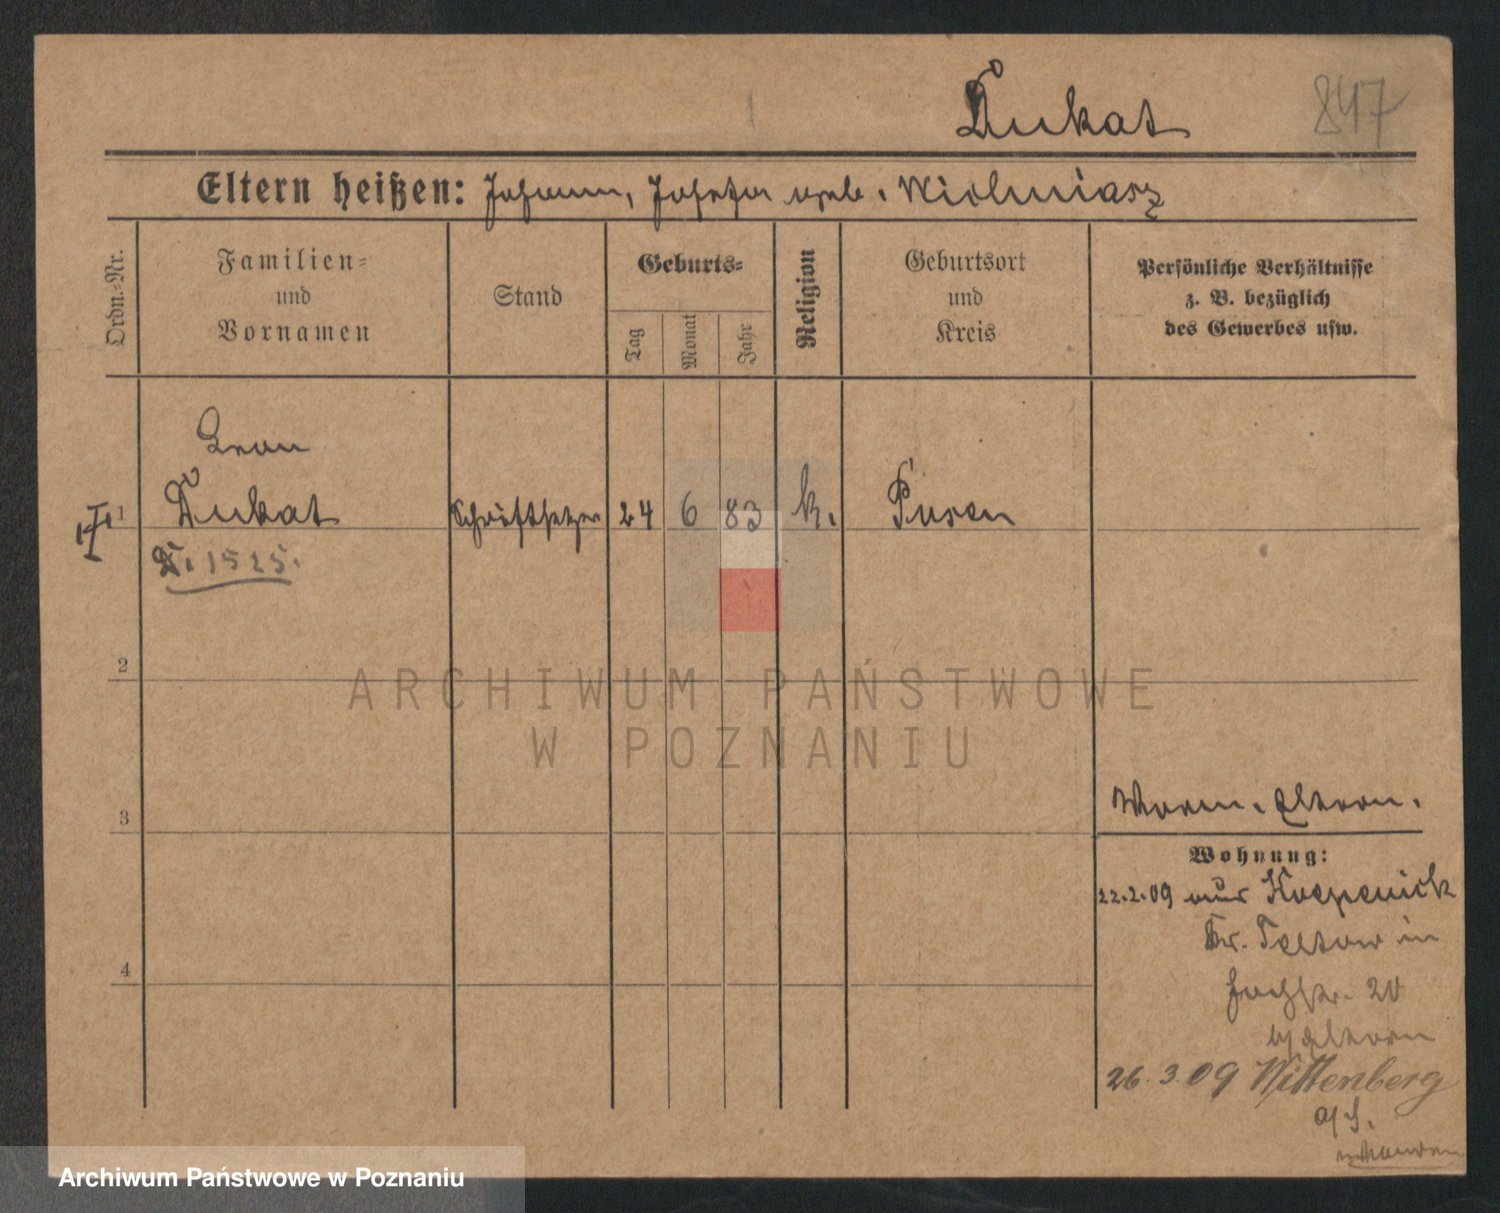 Dukat
847
Eltern heißen: Johann, Josefa geb.
Ordn.-Nr.
Familien-
und
Vornamen
Stand
Geburts-
Tag
Monat
Jahr
Religion
Geburtsort
und
Kreis
Persönliche Verhältnisse
z. B. bezüglich
des Gewerbes usw.
Leon
1
Dukat
Schriftsetzer
24
6
83
k.
Posen
D. 1525.
2
ARCHIWUM PAŃSTWOWE
W POZNANIU
3
Eltern.
Wohnung:
22.2.09 aus Koepenick
Kr. Teltow in
20
b/ Eltern
4
26.3.09 Wittenberg
a/
Archiwum Państwowe w Poznaniu